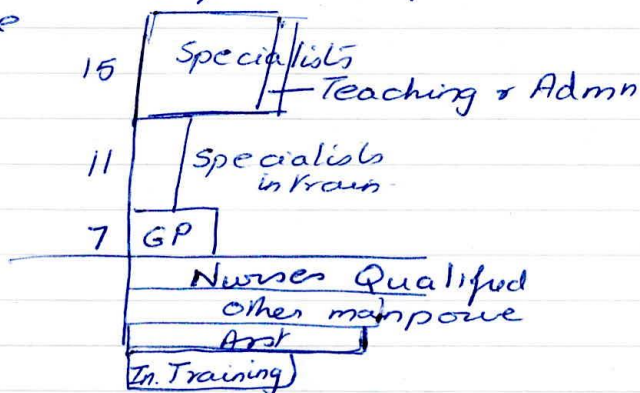 e
15 Specialists
Teaching & Admn
11 Specialists
in train
7 GP
Nurses Qualified
Other manpowe
Asst
In. Training